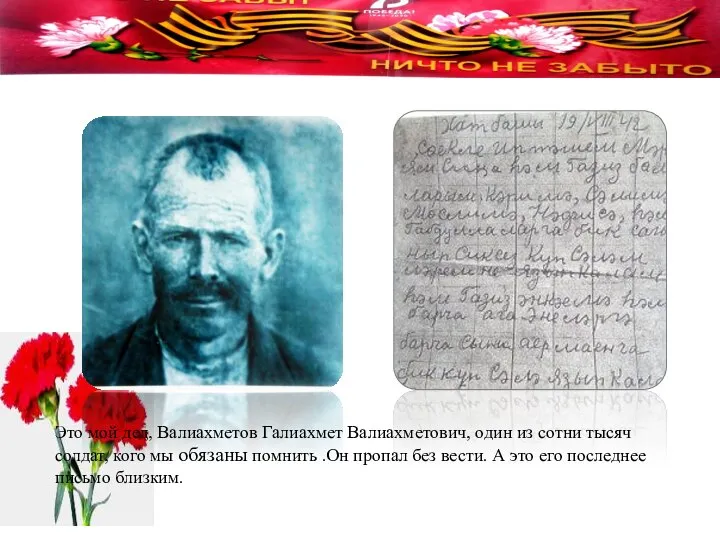 ПОБЕДА!
НИЧТО НЕ ЗАБЫТО
Хат башы 19/VIII 42
Сөекле иптәшем Мәр
ям Сиңа һәм Газиз бал
ларым, Кәримә, Сәлимә
Мөслимә, Нәфисә, һәм
Габдуллаларга бик сагы
нып сиксез Күп Сәләм
ләремне язып Калам
һәм Газиз әнкәемә һәм
барча ага энеләргә
барча сына аермаенча
бик күп Сәләм Языр Калам
Это мой дед, Валиахметов Галиахмет Валиахметович, один из сотни тысяч
солдат, кого мы обязаны помнить .Он пропал без вести. А это его последнее
письмо близким.